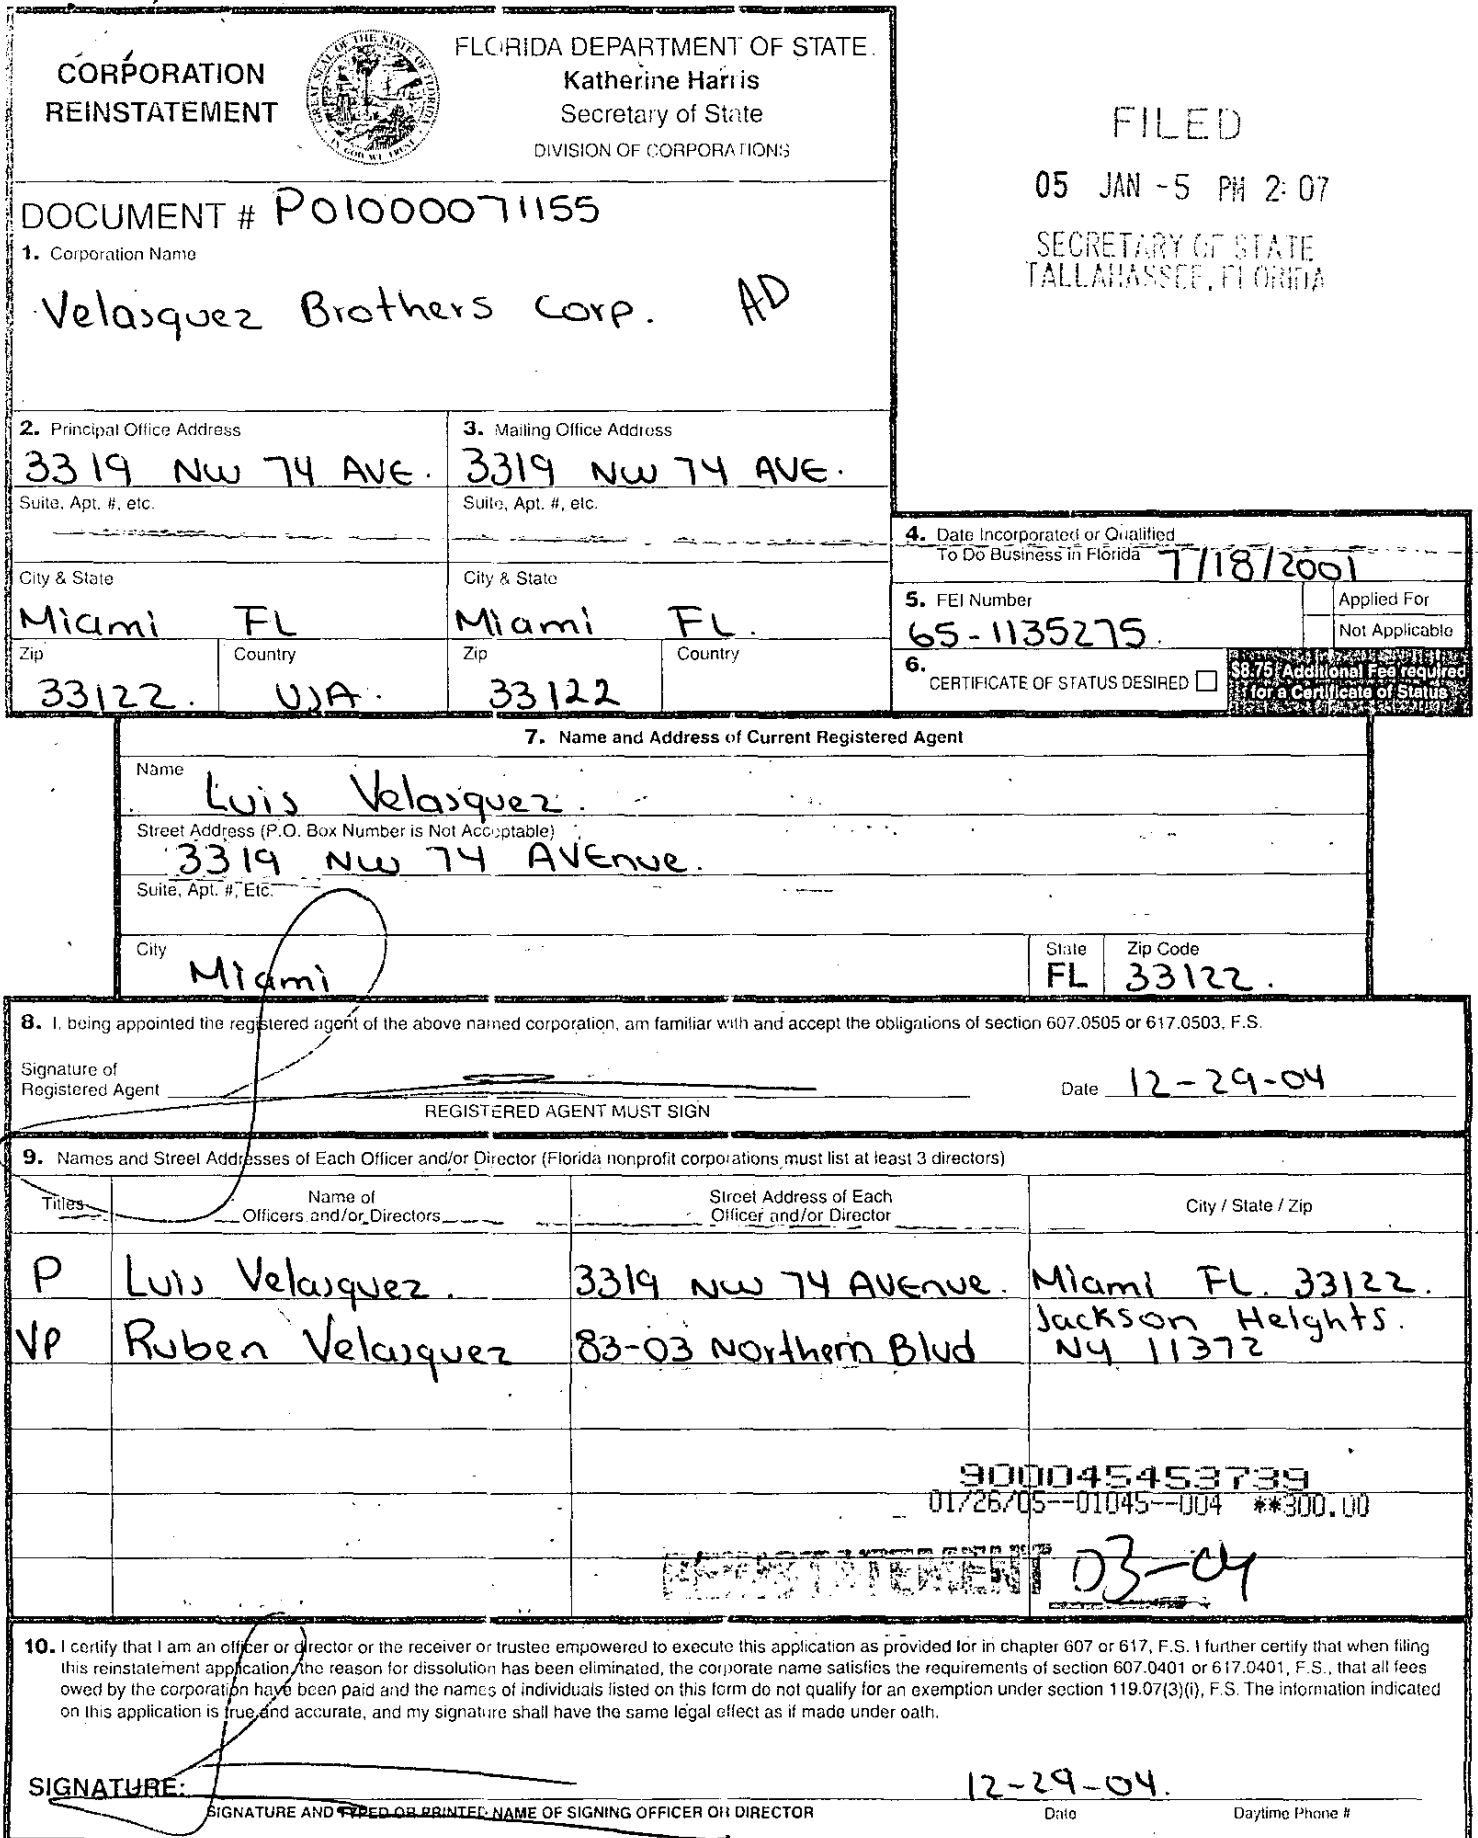 CORPORATION
REINSTATEMENT
GREAT SEAL OF THE STATE OF FLORIDA
IN GOD WE TRUST
FLORIDA DEPARTMENT OF STATE
Katherine Harris
Secretary of State
DIVISION OF CORPORATIONS
FILED
05 JAN -5 PM 2:07
SECRETARY OF STATE
TALLAHASSEE, FLORIDA
DOCUMENT # P01000071155
1. Corporation Name
Velasquez Brothers Corp. AD
2. Principal Office Address
3319 NW 74 AVE.
3. Mailing Office Address
3319 NW 74 AVE.
Suite, Apt. #, etc.
Suite, Apt. #, etc.
City & State
Miami FL
City & State
Miami FL.
Zip
33122.
Country
USA.
Zip
33122
Country
4. Date Incorporated or Qualified
To Do Business in Florida 7/18/2001
5. FEI Number
65-1135275.
Applied For
Not Applicable
6.
CERTIFICATE OF STATUS DESIRED
$8.75 Additional Fee required
for a Certificate of Status
7. Name and Address of Current Registered Agent
Name
Luis Velasquez.
Street Address (P.O. Box Number is Not Acceptable)
3319 NW 74 AVEnue.
Suite, Apt. #, Etc.
City
Miami
State
FL
Zip Code
33122.
8. I, being appointed the registered agent of the above named corporation, am familiar with and accept the obligations of section 607.0505 or 617.0503, F.S.
Signature of
Registered Agent
Date 12-29-04
REGISTERED AGENT MUST SIGN
9. Names and Street Addresses of Each Officer and/or Director (Florida nonprofit corporations must list at least 3 directors)
Titles
Name of
Officers and/or Directors
Street Address of Each
Officer and/or Director
City / State / Zip
P Luis Velasquez. 3319 NW 74 AVEnue. Miami FL. 33122.
VP Ruben Velasquez 83-03 Northern Blvd Jackson Heights.
NY 11372
900045453739
01/26/05--01045--004 **300.00
REINSTATEMENT 03-04
10. I certify that I am an officer or director or the receiver or trustee empowered to execute this application as provided for in chapter 607 or 617, F.S. I further certify that when filing
this reinstatement application, the reason for dissolution has been eliminated, the corporate name satisfies the requirements of section 607.0401 or 617.0401, F.S., that all fees
owed by the corporation have been paid and the names of individuals listed on this form do not qualify for an exemption under section 119.07(3)(i), F.S. The information indicated
on this application is true and accurate, and my signature shall have the same legal effect as if made under oath.
SIGNATURE:
12-29-04.
SIGNATURE AND TYPED OR PRINTED NAME OF SIGNING OFFICER OR DIRECTOR
Date
Daytime Phone #